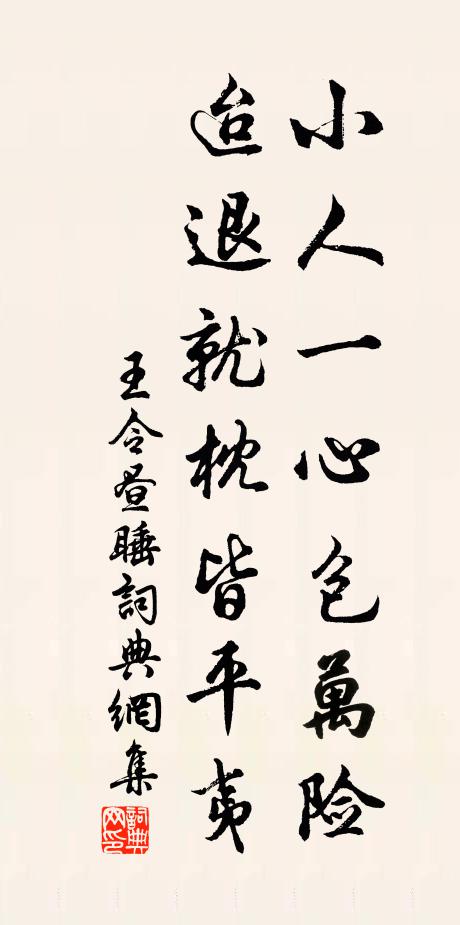 小人一心包萬险
迨退就枕皆平夷
王令昼睡詞典網集
詞典网印